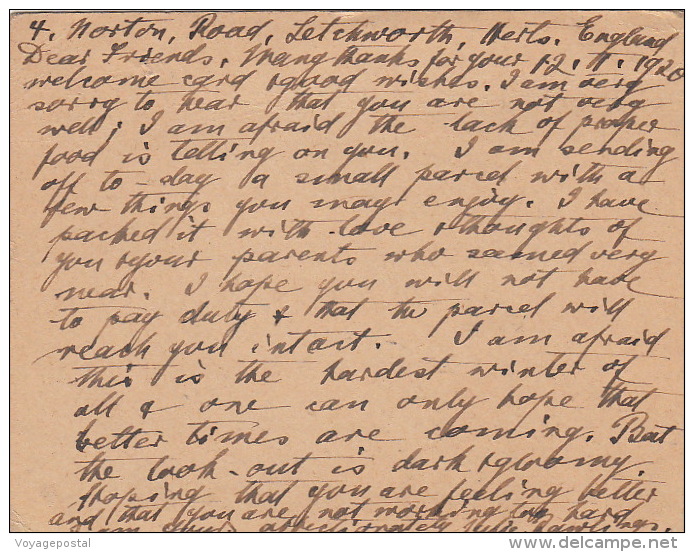 4. Norton, Road, Letchworth, Herts. England
Dear Friends, Many thanks for your 12. 11. 1920
welcome card & good wishes. I am very
sorry to hear that you are not very
well; I am afraid the lack of proper
food is telling on you. I am sending
off to-day a small parcel with a
few things you may enjoy. I have
packed it with love & thoughts of
you & your parents who seemed very
near. I hope you will not have
to pay duty & that the parcel will
reach you intact. I am afraid
this is the hardest winter of
all & one can only hope that
better times are coming. But
the look-out is dark & gloomy.
Hoping that you are feeling better
and that you are not working too hard
I am your affectionately
Voyagepostal
© www.delcampe.net